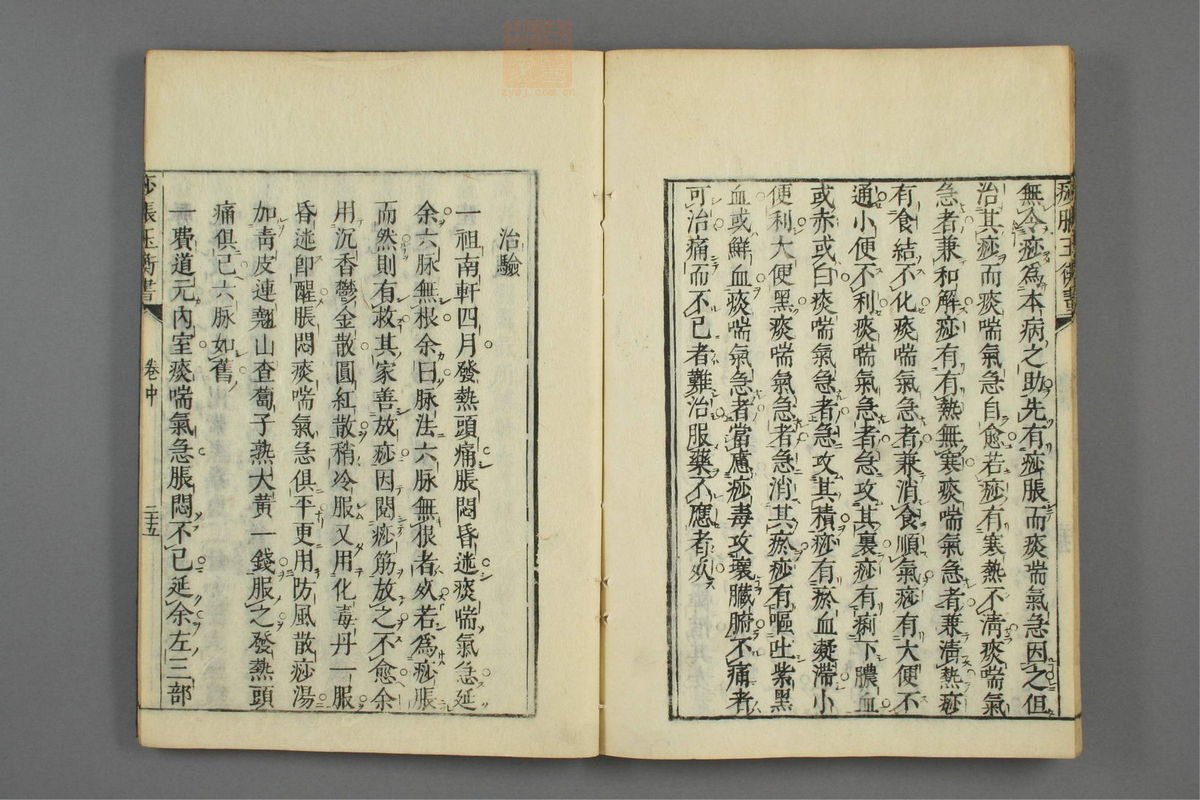 痧脹玉衡書
無令痧為本病之助先有痧脹而痰喘氣急因之但
治其痧而痰喘氣急自愈若痧有寒熱不淸痰喘氣
急者兼和解痧有有熱無寒痰喘氣急者兼淸熱痧
有食結不化痰喘氣急者兼消食順氣痧有大便不
通小便不利痰喘氣急者急攻其裏痧有痢下膿血
或赤或白痰喘氣急者急攻其積痧有瘀血凝滯小
便利大便黑痰喘氣急者急消其瘀痧有嘔吐紫黑
血或鮮血痰喘氣急者當慮痧毒攻壞臟腑不痛者
可治痛而不已者難治服藥不應者死
治驗
一祖南軒四月發熱頭痛脹悶昏迷痰喘氣急延
余六脉無根余曰脉法六脉無根者死若為痧脹
而然則有救其家善放痧因閱痧筋放之不愈余
用沉香鬱金散圓紅散稍冷服又用化毒丹一服
昏迷卽醒脹悶痰喘氣急俱平更用防風散痧湯
加靑皮連翹山查蔔子熟大黃一錢服之發熱頭
痛俱已六脉如舊
一費道元內室痰喘氣急脹悶不已延余左三部
痧脹玉衡書
卷中
二十五
zyyj.com.cn